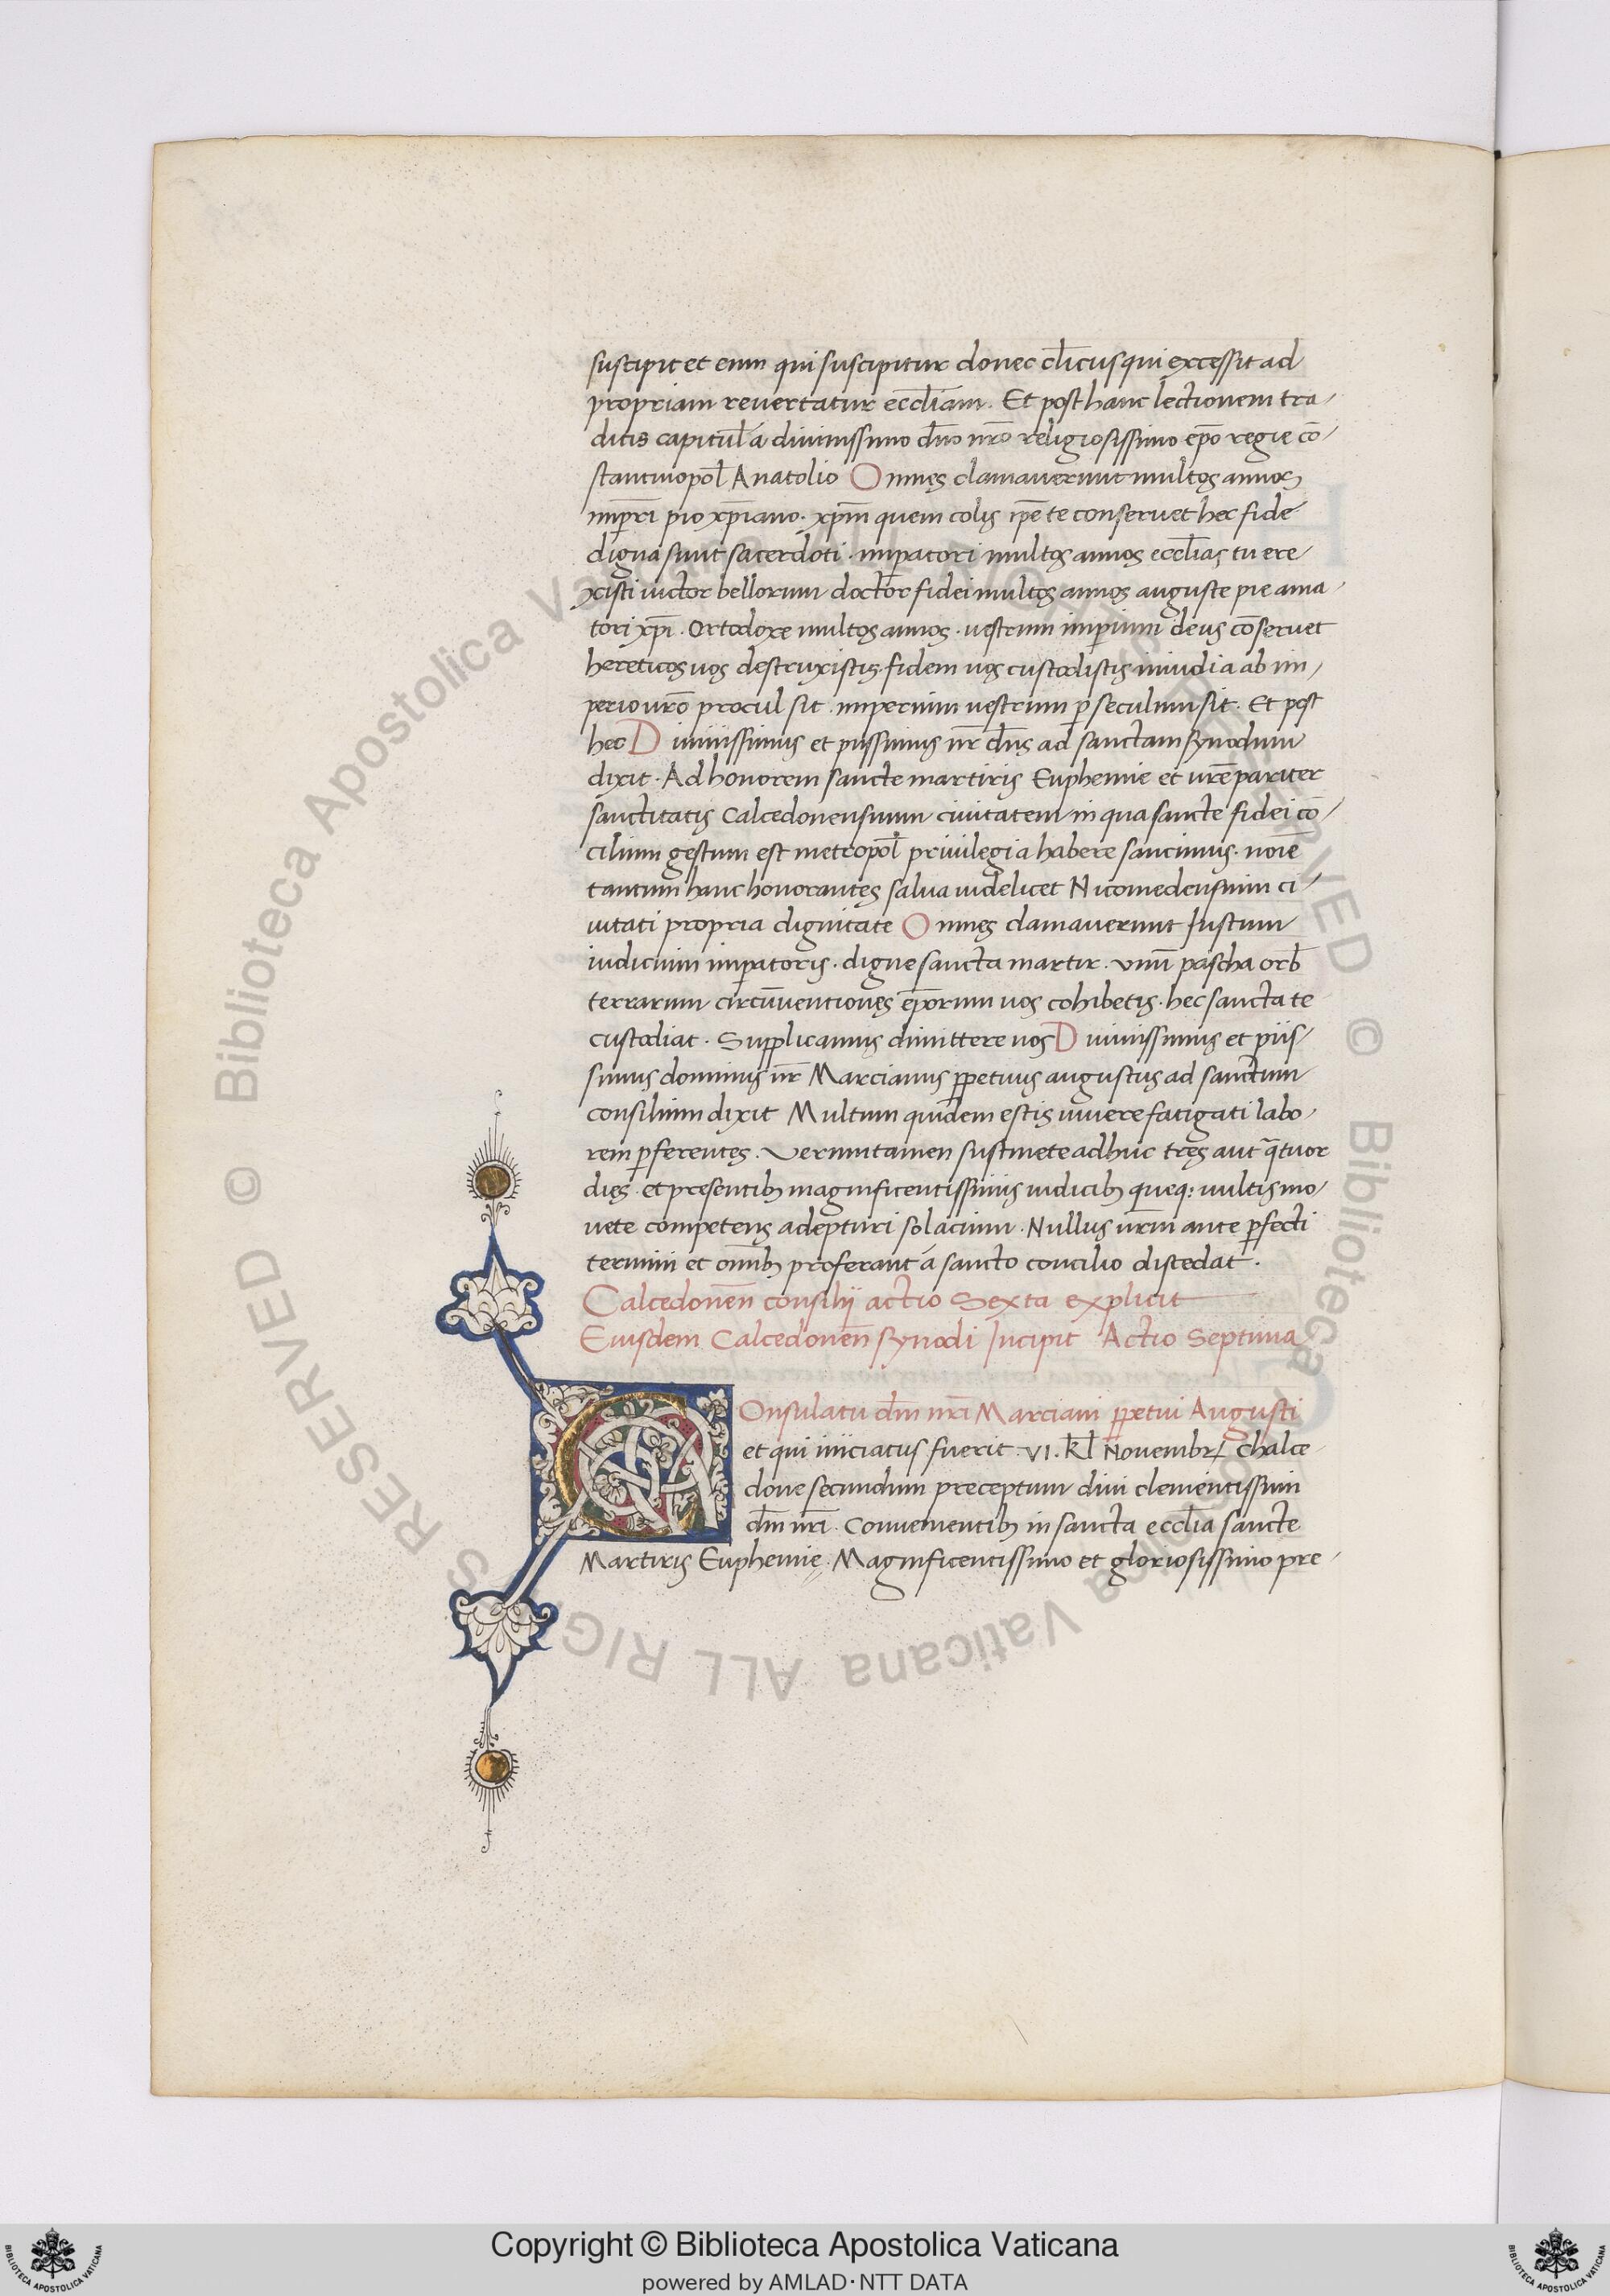 suscipit et eum qui suscipitur donec cl̄icus qui excessit ad
propriam reuertatur eccl̄iam. Et post hanc lectionem tra-
ditis capitul̄ á diuinissimo dn̄o nr̄o religiosissimo ep̄o regie cō-
stantinopol̄ Anatolio Omnes clamauerunt multos annos
imp̄ri pio xp̄iano. xp̄m quem colis ip̄e te conseruet hec fide
digna sunt sacerdoti. imp̄atori multos annos eccl̄ias tu ere-
xisti uictor bellorum doctor fidei multos annos auguste pie ama-
tori xp̄i. Ortodoxe multos annos. uestrum imp̄ium deus cōseruet
hereticos uos destruxistis. fidem uos custodistis inuidia ab im-
perio ur̄o procul sit. imperium uestrum p̄ seculum sit. Et post
hec Diuinissimus et piissimus nr̄ dn̄s ad sanctam synodum
dixit. Ad honorem sancte martiris Euphemie et ur̄e pariter
sanctitatis Calcedonensium ciuitatem in qua sancte fidei cō-
cilium gestum est metropol̄ priuilegia habere sancimus. noīe
tantum hanc honorantes salua uidelicet Nicomedensium ci-
uitati propria dignitate Omnes clamauerunt Iustum
iudicium imp̄atoris. digne sancta martir. unū pascha orb̄
terrarum circūuentiones ep̄orum uos cohibetis. hec sancta te
custodiat. Supplicamus dimittere nos Diuinissimus et piis-
simus dominus nr̄ Marcianus pp̄etuus augustus ad sanctum
consilium dixit Multum quidem estis iuuere fatigati labo-
rem p̄ferentes. Verumtamen sustinete adhuc tres aut q̄tuor
dies. et presentibꝫ magnificentissimis iudicibꝫ queq: uultis mo-
uete competens adepturi solacium. Nullus ur̄m ante p̄fecti
termini et om̄ibꝫ proferant á sancto concilio discedat.
Calcedonen̄ consilij actio Sexta explicit
Eiusdem Calcedonen̄ synodi Incipit Actio Septima
COnsulatu dn̄i nr̄i Marciani pp̄etui Augusti
et qui iniciatus fuerit. VI. kl̄ Nouembr̄ chalce-
done secundum preceptum diui clementissimi
dn̄i nr̄i. Conuenientibꝫ in sancta eccl̄ia sancte
Martiris Euphemię. Magnificentissimo et gloriosissimo pre-
© Biblioteca Apostolica Vaticana ALL RIGHTS RESERVED © Biblioteca Apostolica Vaticana ALL RIGHTS RESERVED
Copyright © Biblioteca Apostolica Vaticana
powered by AMLAD·NTT DATA
BIBLIOTECA APOSTOLICA VATICANA
BIBLIOTECA APOSTOLICA VATICANA